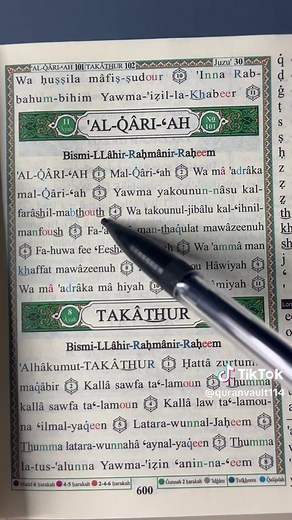 'AL-QÂRI-ʻAH 101 TAKÂTHUR 102 Juzu' 30
Wa huṣṣila mâfiṣ-ṣudour 10 'Inna Rab-
bahum-bihim Yawma-'iẕil-la-Khabeer 11
11 'AL-Q̇ÂRI-ʻAH No. 101
Bismi-LLâhir-Raḥmânir-Raḥeem
'AL-Q̇ÂRI-ʻAH 1 Mal-Q̇âri-ʻah 2 Wa mâ 'adrâka
mal-Q̇âri-ʻah 3 Yawma yakounun-nâsu kal-
farâshil-mabthouth 4 Wa takounul-jibâlu kal-ʻihnil-
manfoush 5 Fa-'a man-thaqulat mawâzeenuh
Fa-huwa fee ʻEesha Wa 'ammâ man
khaffat mawâzeenuh 8 Hâwiyah 9
Wa mâ 'adrâka mâ hiyah 10
8 TAKÂTHUR
Bismi-LLâhir-Raḥmânir-Raḥeem
'Alhâkumut-TAKÂTHUR 1 Ḥattâ zurtum
maqâbir 2 Kallâ sawfa ta-ʻlamoun 3 Thumma
kallâ sawfa ta-ʻlamoun 4 Kallâ law ta-ʻlamou-
na ʻilmal-yaq̇een 5 Latara-wunnal-Jaḥeem 6
Thumma latara-wunnahâ ʻaynal-yaq̇een 7 Thumma
la-tus-'alunna Yawma-'iẕin ʻanin-na-ʻeem 8
Madd 6 ḥarakah 4-5 ḥarakah 2-4-6 ḥarakah Ġunnah 2 ḥarakah 'Idġâm Tafkheem Qalqalah
600
TikTok
@quranvault114